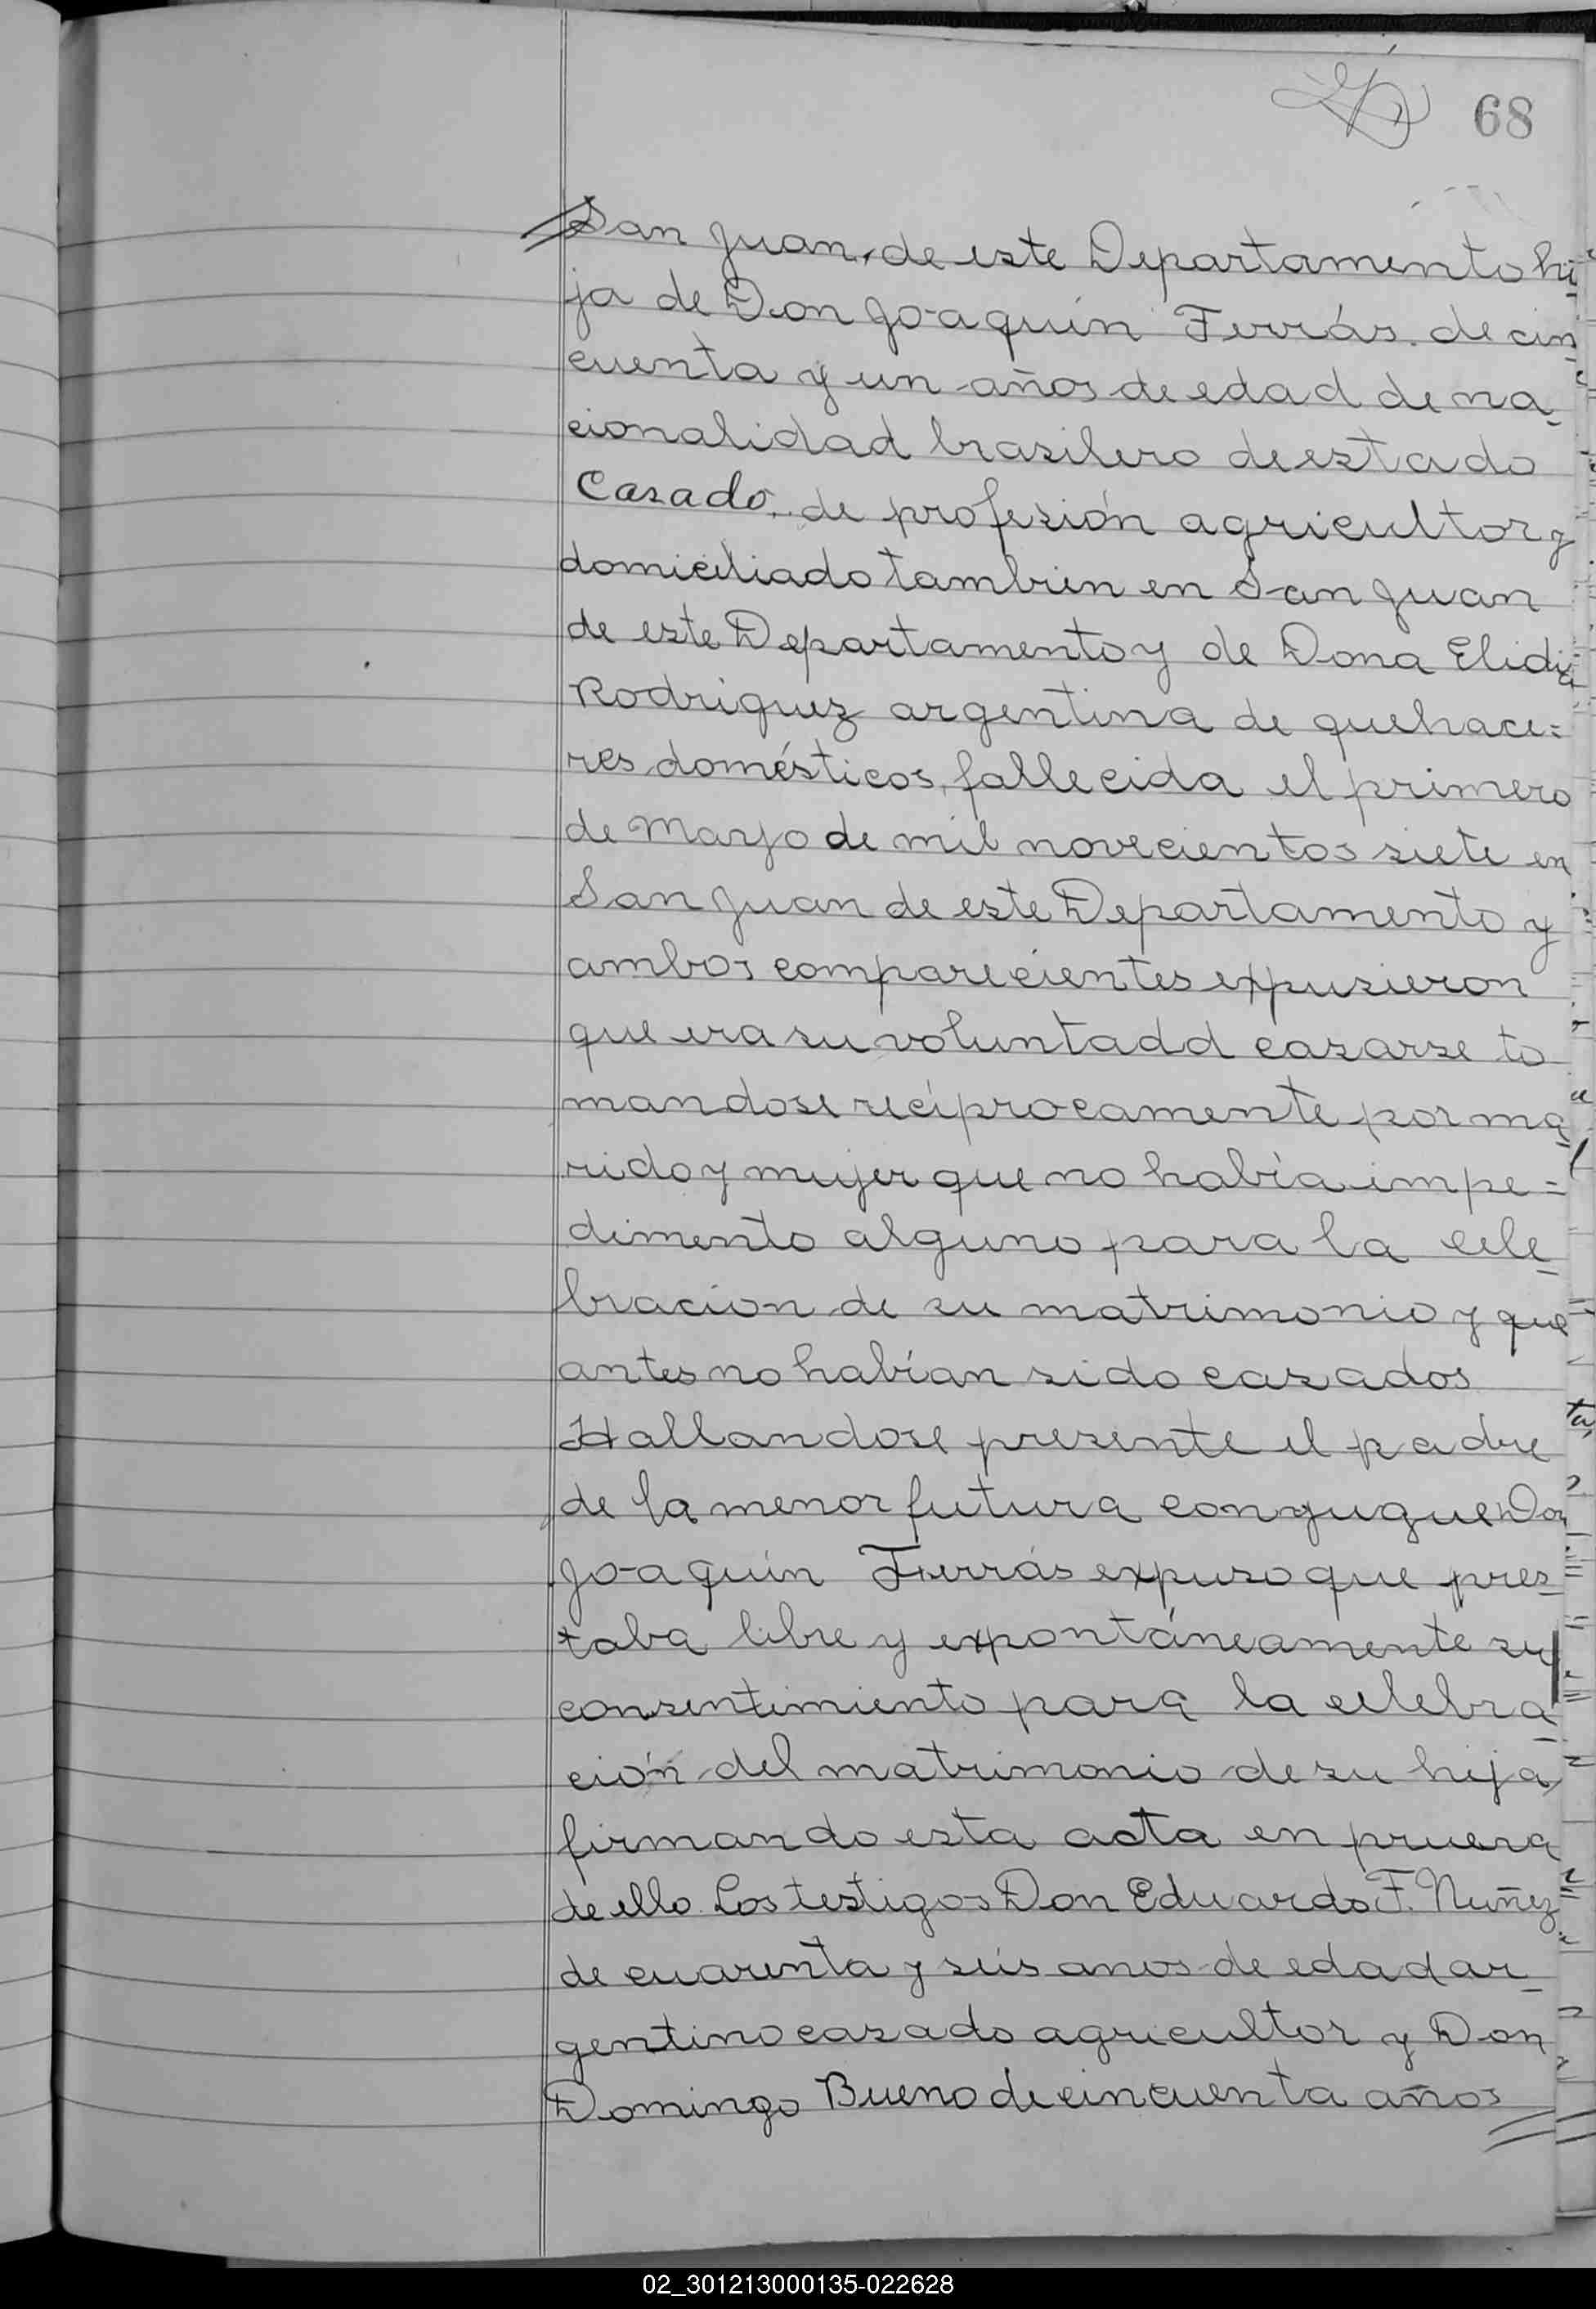 68
San Juan, de este Departamento hi-
ja de Don Joaquín Ferrás. de cin-
cuenta y un años de edad de na-
cionalidad brasilero de estado
Casado, de profesión agricultor y
domiciliado tambien en San Juan
de este Departamento y de Dona Elidia
Rodriguez argentina de quehace=
res domésticos, fallecida el primero
de Mayo de mil novecientos siete en
San Juan de este Departamento y
ambos comparecientes expusieron
que era su voluntadd casarse to
mandose recíprocamente por ma-
rido y mujer que no había impe=
dimento alguno para la cele-
bracion de su matrimonio y que
antes no habían sido casados
Hallandose presente el padre
de la menor futura conyugue Don
Joaquín Ferrás expuso que pres-
taba libre y expontáneamente su
consentimiento para la celebra-
ción del matrimonio de su hija
firmando esta acta en pruera
de ello. Los testigos Don Eduardo F. Nuñez
de cuarenta y seis anos de edad ar-
gentino casado agricultor y Don
Domingo Bueno de cincuenta años
02_301213000135-022628